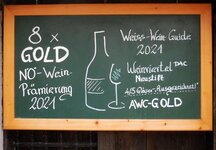 8 x
GOLD
NÖ-Wein-
Prämierung
2021
Weiss-Wein-Guide
2021
Weinviertel DAC
Neustift
4/5 Gläser „Ausgezeichnet“
AWC-GOLD